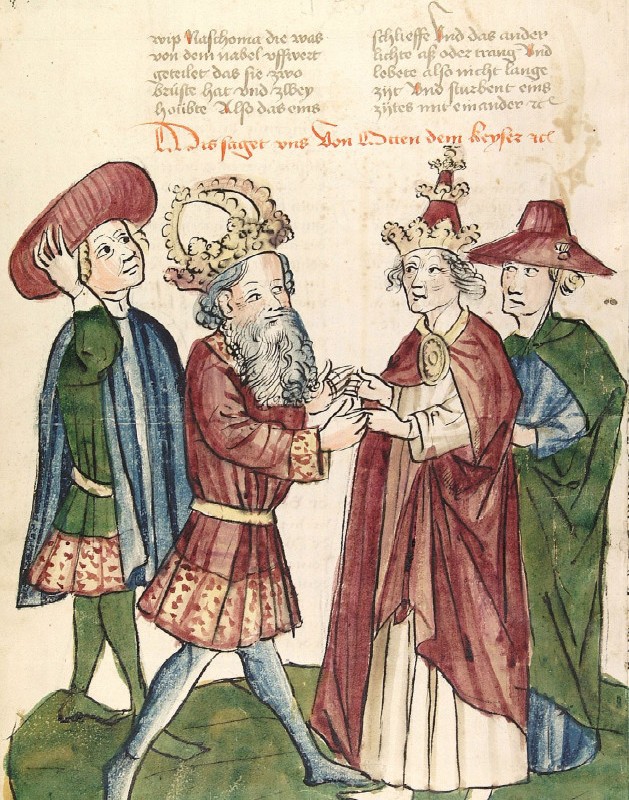 wip Naschoma die was
von dem nabel uffwert
geteilet das sie zwo
brüste hat vnd zwey
houbte Also das eins
schlieffe vnd das ander
lichte aß oder trang vnd
lobete also nicht lange
zijt vnd sturbent eins
zijtes mit einander ꝛc
Dis saget vns von Otten dem keyser ꝛc